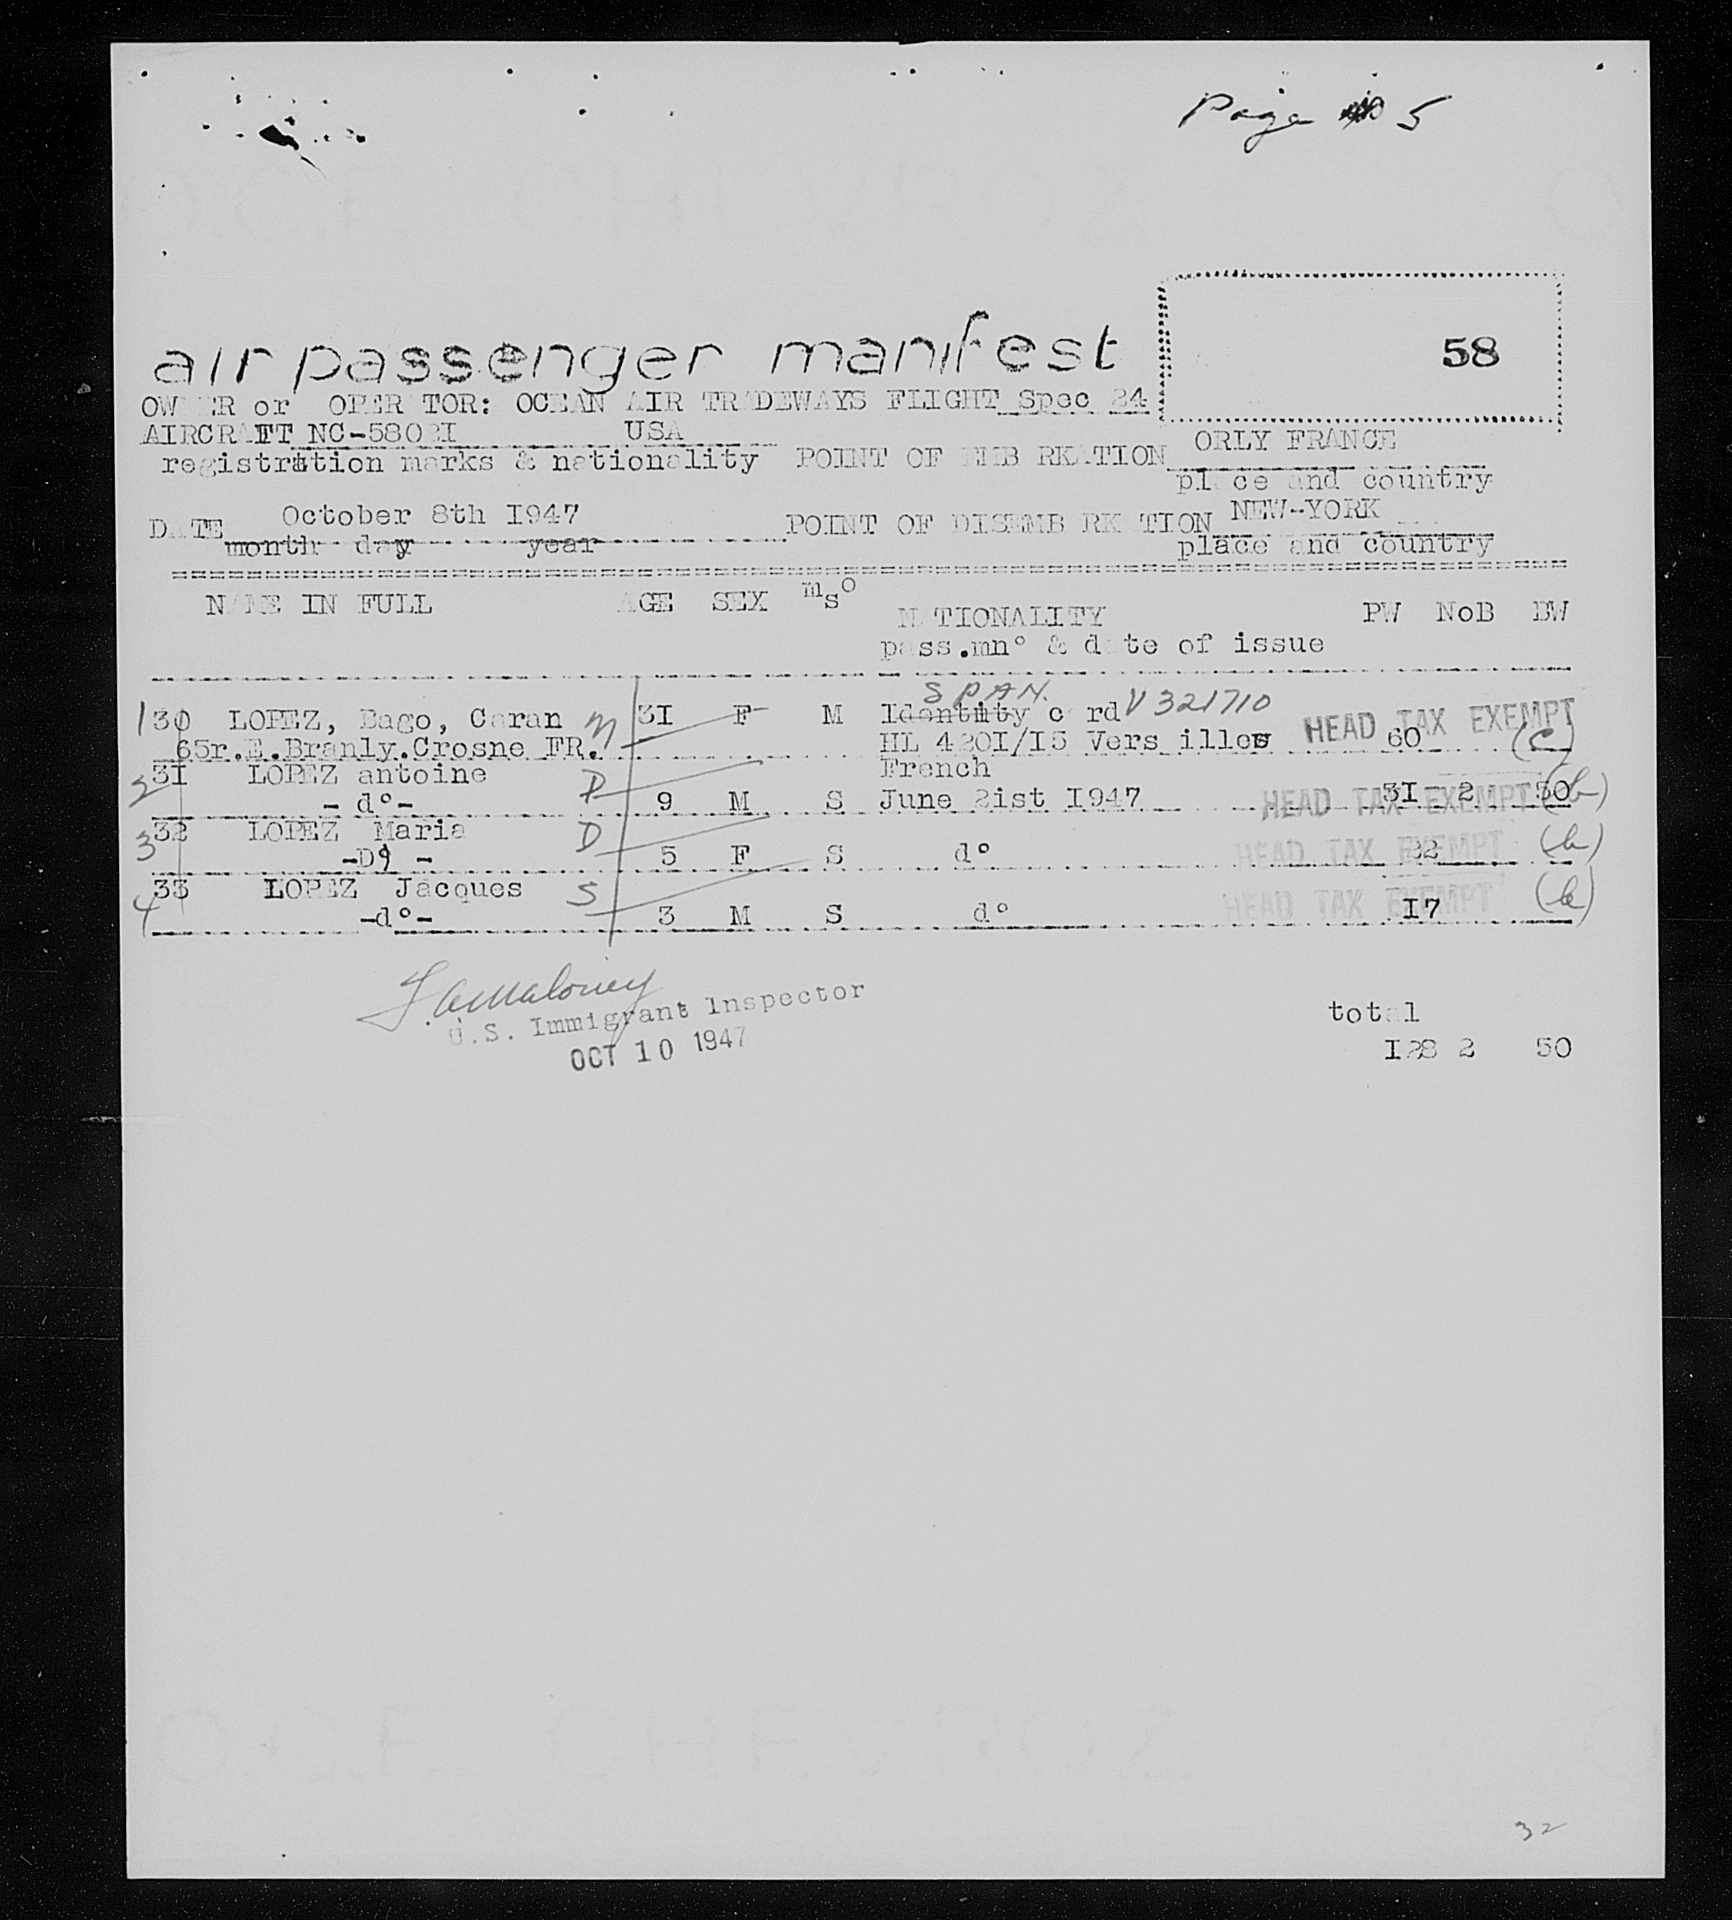 Page 5
58
air passenger manifest
OWNER or OPERATOR: OCEAN AIR TRADEWAYS FLIGHT Spec 24
AIRCRAFT NC-5802I USA
registration marks & nationality POINT OF EMBARKATION ORLY FRANCE
place and country
DATE October 8th I947 POINT OF DISEMBARKATION NEW-YORK
month day year place and country
NAME IN FULL AGE SEX mso NATIONALITY PW NoB BW
pass.mn° & date of issue
SPAN.
1 30 LOPEZ, Bago, Caran M 3I F M Identity card V 321710 HEAD TAX EXEMPT
65r.E.Branly.Crosne FR. HL 420I/I5 Versailles 60 (c)
2 3I LOPEZ antoine D French
-d°- 9 M S June 2ist I947 HEAD TAX EXEMPT 3I 2 50 (b)
3 32 LOPEZ Maria D
-D°- 5 F S d° HEAD TAX EXEMPT 22 (b)
4 33 LOPEZ Jacques S
-d°- 3 M S d° HEAD TAX EXEMPT I7 (b)
Maloney
U.S. Immigrant Inspector
OCT 10 1947
total
I28 2 50
32